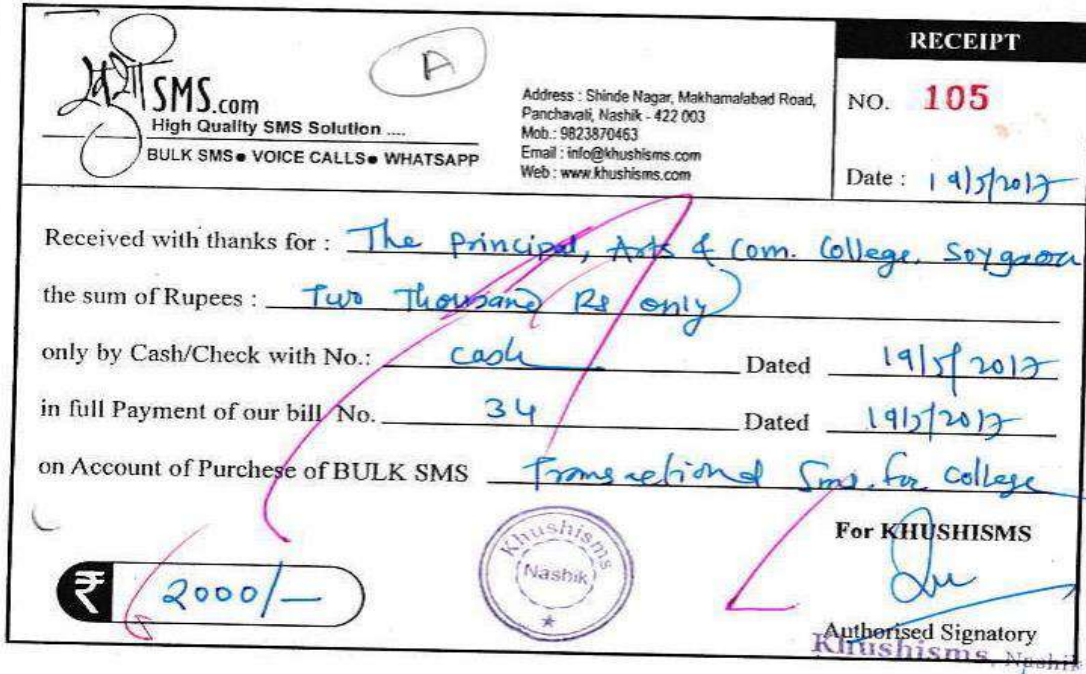 RECEIPT
खुशी SMS.com
A
High Quality SMS Solution ....
BULK SMS● VOICE CALLS● WHATSAPP
Address : Shinde Nagar, Makhamalabad Road,
Panchavati, Nashik - 422 003
Mob.: 9823870463
Email : info@khushisms.com
Web : www.khushisms.com
NO. 105
Date : 19/5/2017
Received with thanks for : The Principal, Arts & Com. College, Soygaon
the sum of Rupees : Two Thousand Rs only
only by Cash/Check with No.: cash Dated 19/5/2017
in full Payment of our bill No. 34 Dated 19/5/2017
on Account of Purchese of BULK SMS Transactional Sms. for College
For KHUSHISMS
₹ 2000/-
Khushisms
Nashik
Authorised Signatory
Khushisms, Nashik